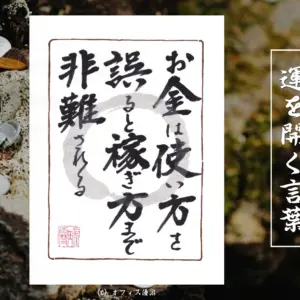 お金は使い方を
誤ると稼ぎ方まで
非難される
運を開く言葉